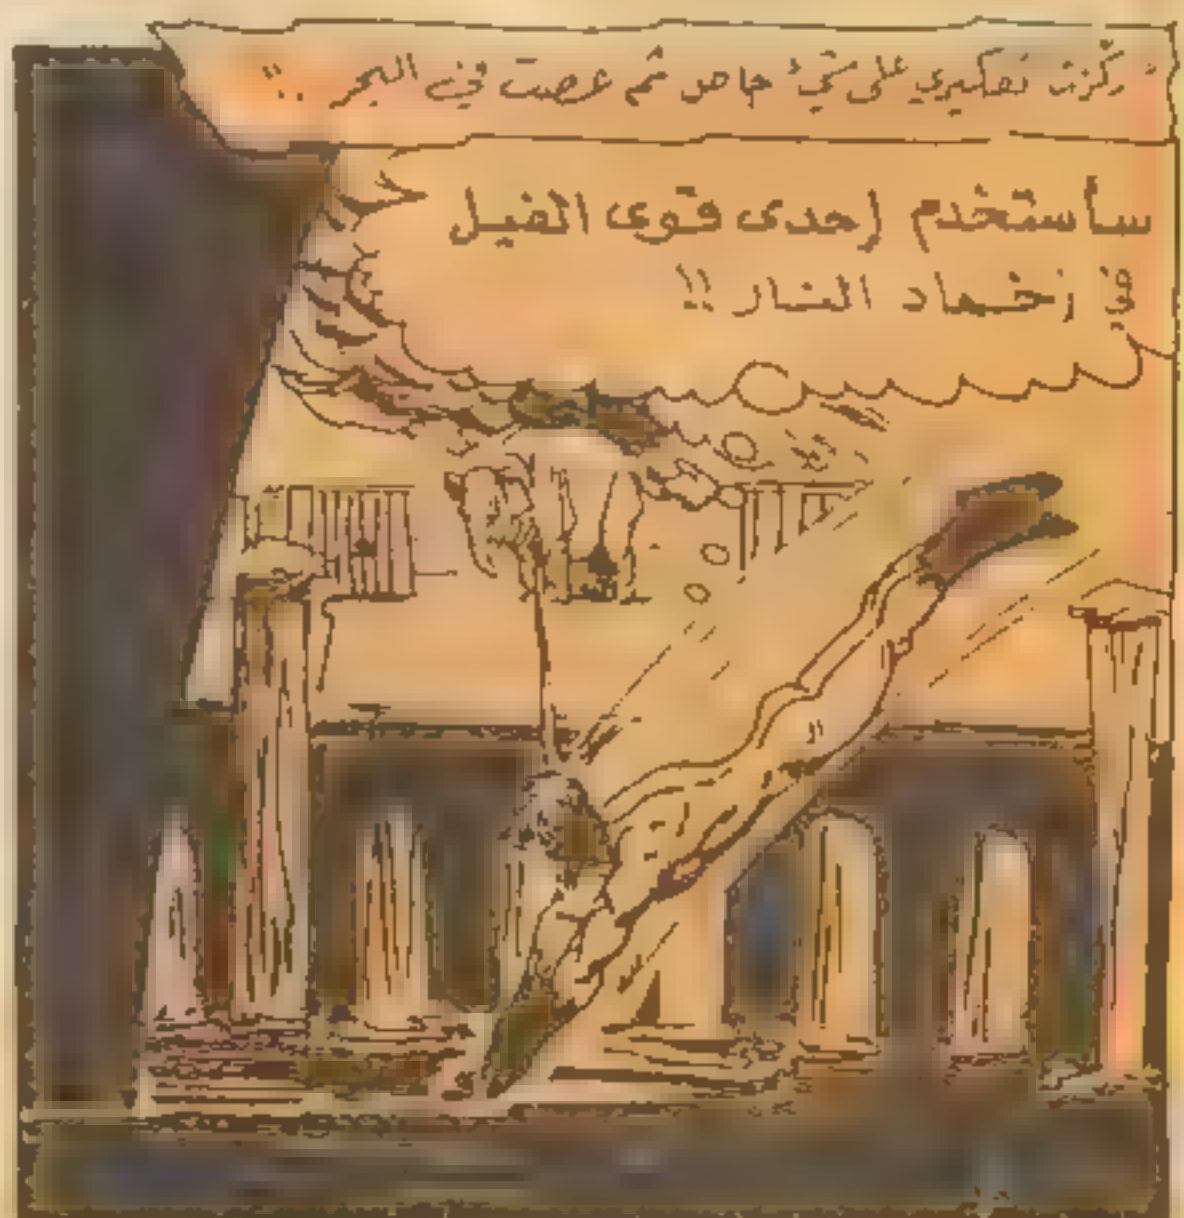 ركزت تفكيري على شيء خاص ثم غصت في البحر ..!!
سأستخدم إحدى قوى الفيل
في إخماد النار !!